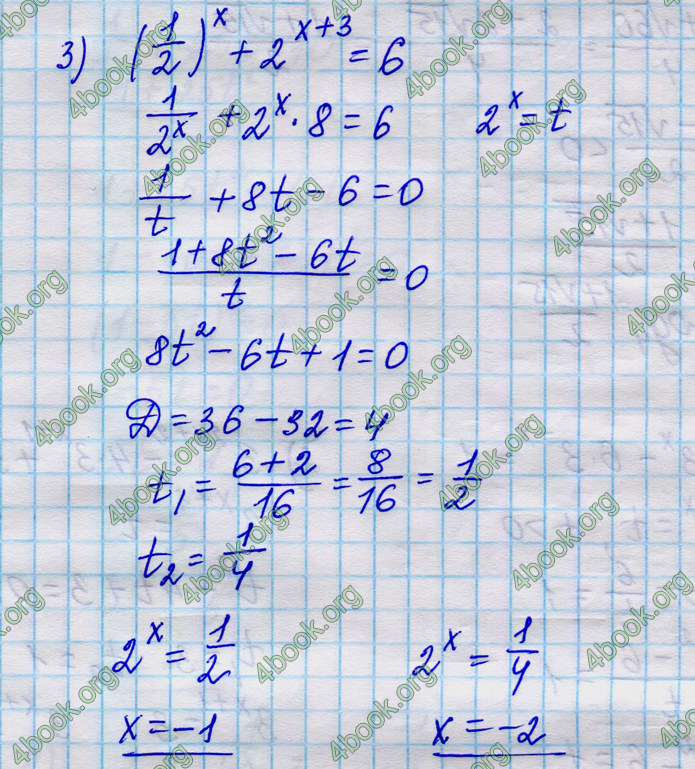 3) (1/2)^x + 2^(x+3) = 6
1/2^x + 2^x · 8 = 6    2^x = t
1/t + 8t - 6 = 0
(1 + 8t² - 6t)/t = 0
8t² - 6t + 1 = 0
D = 36 - 32 = 4
t₁ = (6+2)/16 = 8/16 = 1/2
t₂ = 1/4
2^x = 1/2    2^x = 1/4
x = -1    x = -2
4book.org